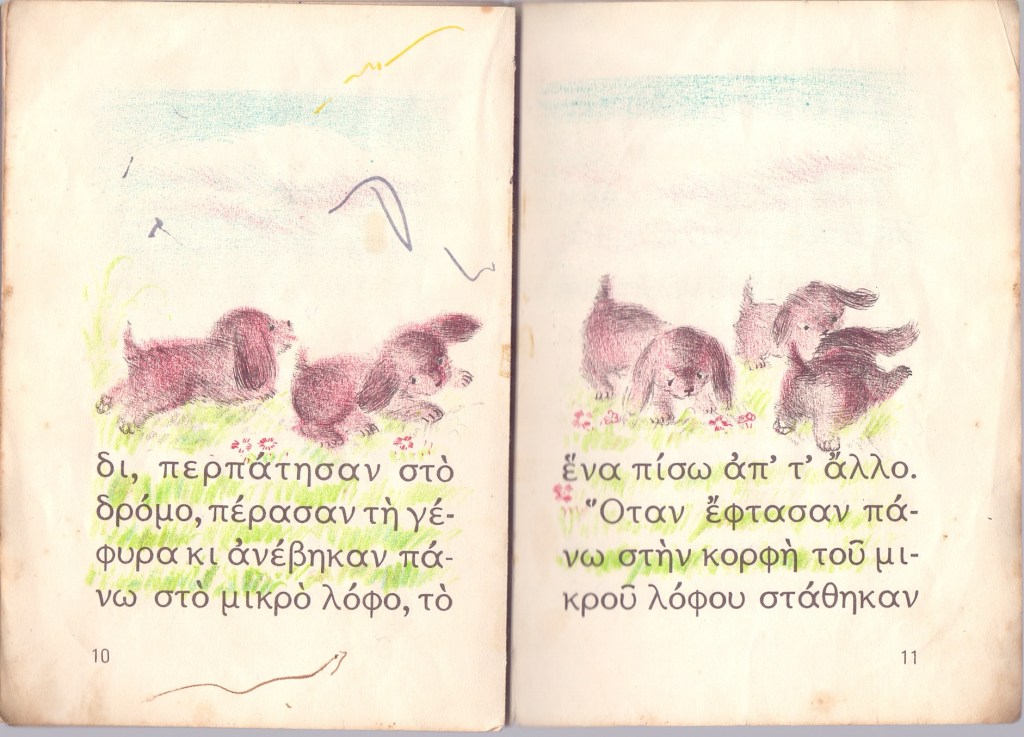 δι, περπάτησαν στὸ
δρόμο, πέρασαν τὴ γέ-
φυρα κι ἀνέβηκαν πά-
νω στὸ μικρὸ λόφο, τὸ
10
ἕνα πίσω ἀπ’ τ’ ἄλλο.
Ὅταν ἔφτασαν πά-
νω στὴν κορφὴ τοῦ μι-
κροῦ λόφου στάθηκαν
11